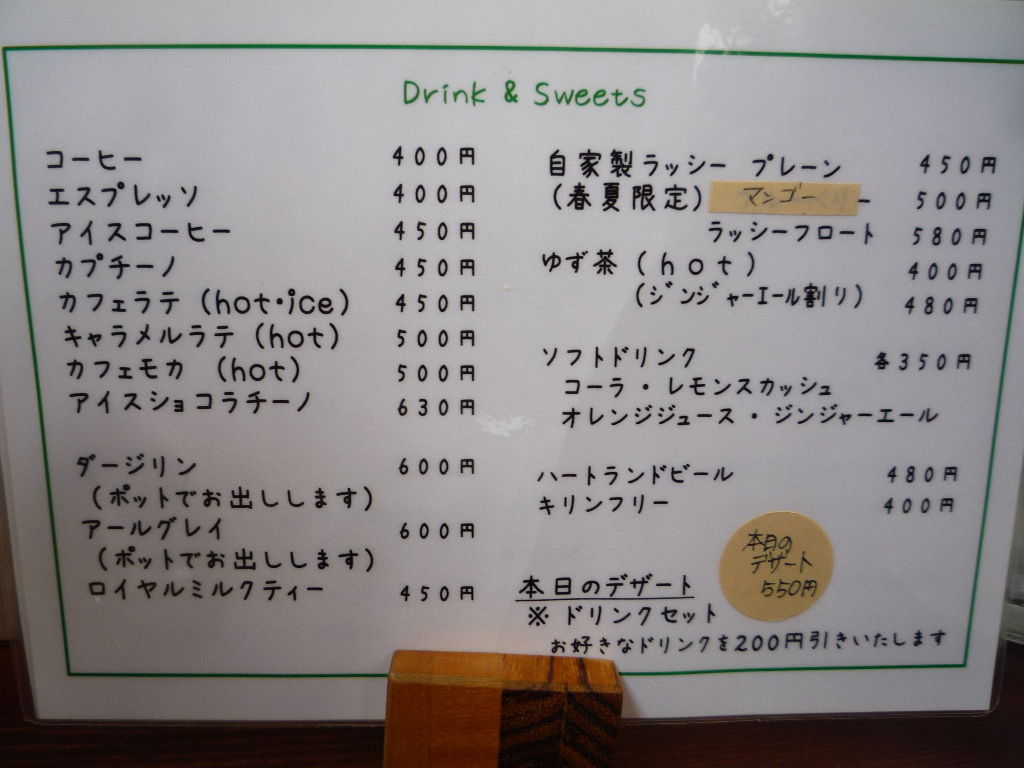 Drink & Sweets
コーヒー 400円
エスプレッソ 400円
アイスコーヒー 450円
カプチーノ 450円
カフェラテ (hot・ice) 450円
キャラメルラテ (hot) 500円
カフェモカ (hot) 500円
アイスショコラチーノ 630円
ダージリン 600円
(ポットでお出しします)
アールグレイ 600円
(ポットでお出しします)
ロイヤルミルクティー 450円
自家製ラッシー プレーン 450円
(春夏限定) マンゴー 500円
ラッシーフロート 580円
ゆず茶 (hot) 400円
(ジンジャーエール割り) 480円
ソフトドリンク 各350円
コーラ・レモンスカッシュ
オレンジジュース・ジンジャーエール
ハートランドビール 480円
キリンフリー 400円
本日のデザート
※ ドリンクセット
お好きなドリンクを200円引きいたします
本日の
デザート
550円